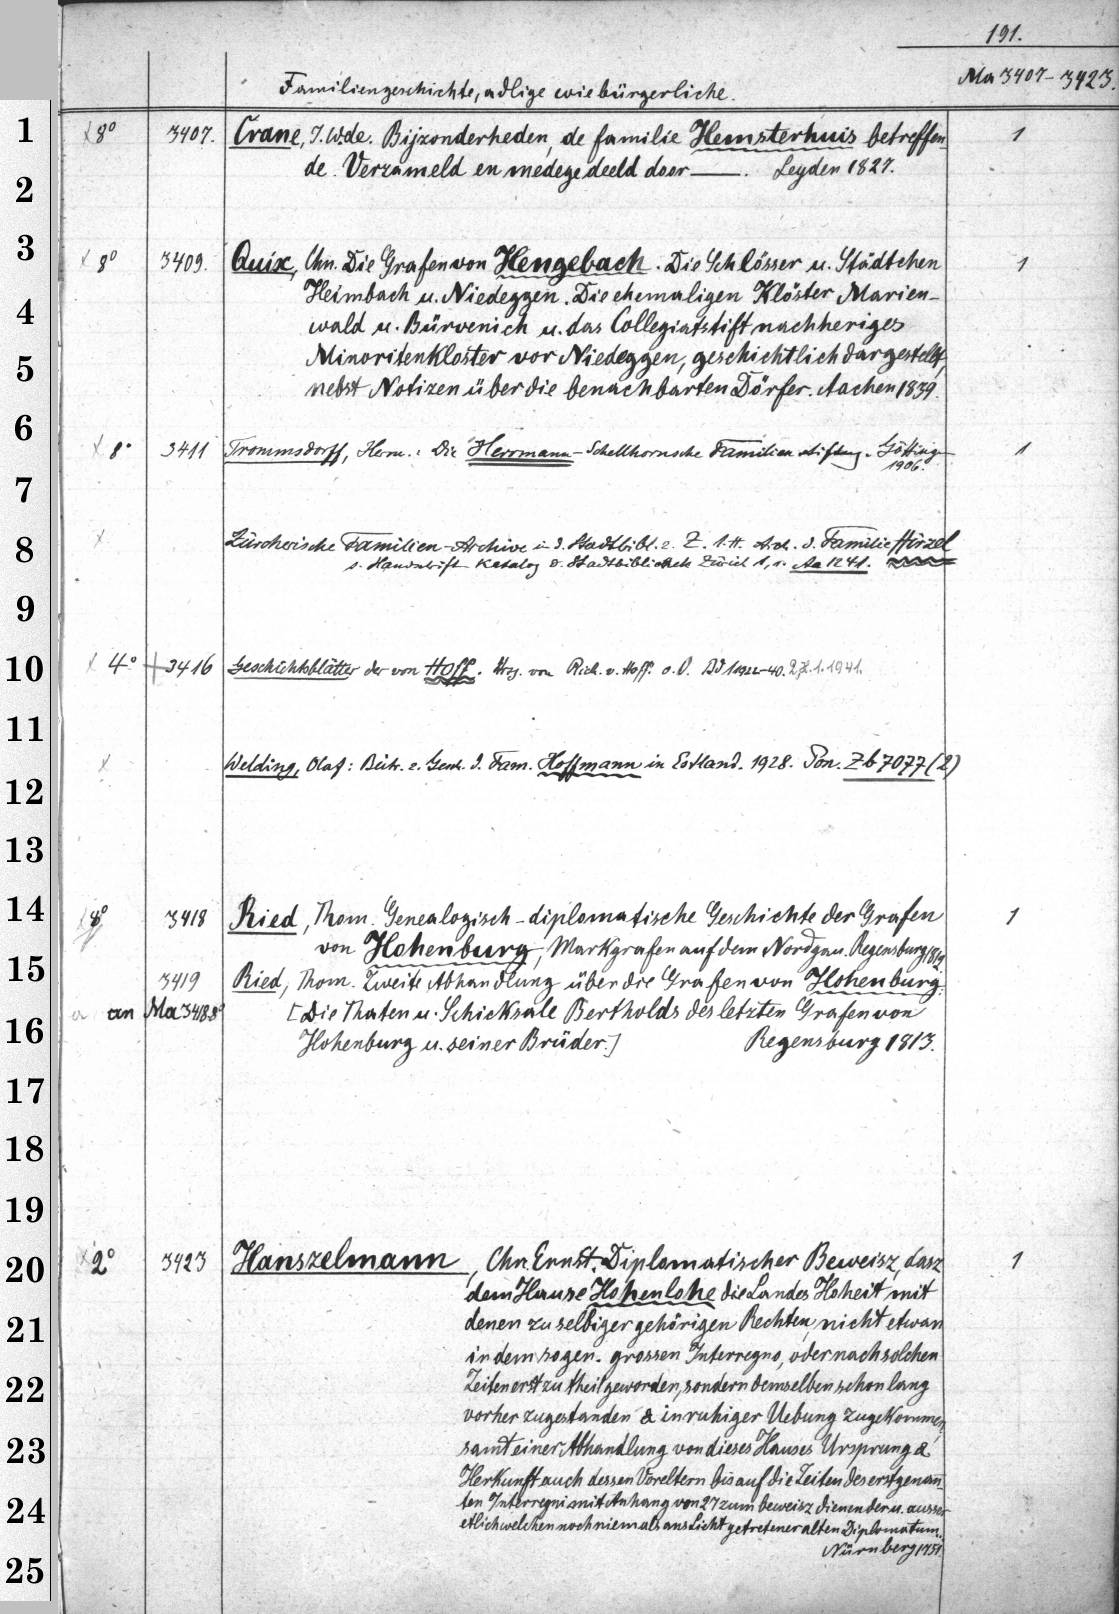 191.
Familiengeschichte, adlige wie bürgerliche.
Ma 3407-3423.
1
8° 3407. Crane, J. W. de. Bijzonderheden, de familie Hemsterhuis betreffen- 1
2
de. Verzameld en medegedeeld door ——. Leyden 1827.
3
8° 3409. Quix, Chn. Die Grafen von Hengebach. Die Schlösser u. Städtchen 1
4
Heimbach u. Niedeggen. Die ehemaligen Klöster Marien-
wald u. Bürvenich u. das Collegiatstift nachheriges
5
Minoritenkloster vor Niedeggen, geschichtlich dargestellt,
nebst Notizen über die benachbarten Dörfer. Aachen 1839.
6
8° 3411 Trommsdorff, Herm.: Die Herrmann-Schellhornsche Familienstiftung. Göttingen 1
1906.
7
8
Zürcherische Familien-Archive in d. Stadtbibl. z. Z. 1. H. Arch. d. Familie Hirzel
s. Handschrift Katalog d. Stadtbibliothek Zürich 1, Aa 1241.
9
10
4° 3416 Geschichtsblätter der von Hoff. Hrsg. von Rich. v. Hoff. o. O. Bd 1 1922-40. 2, 1. 1941.
11
Welding, Olaf: Beitr. z. Gesch. d. Fam. Hoffmann in Estland. 1928. Zb 7077 (2)
12
13
14
8° 3418 Ried, Thom. Genealogisch-diplomatische Geschichte der Grafen 1
von Hohenburg, Markgrafen auf dem Nordgau. Regensburg 1812.
15
3419 Ried, Thom. Zweite Abhandlung über die Grafen von Hohenburg.
an Ma 3418 8° [Die Thaten u. Schicksale Bertholds des letzten Grafen von
16
Hohenburg u. seiner Brüder.] Regensburg 1813.
17
18
19
20
2° 3423 Hanszelmann, Chn. Ernst. Diplomatischer Beweisz, dasz 1
dem Hause Hohenlohe die Landes Hoheit mit
21
denen zu selbiger gehörigen Rechten, nicht etwan
in dem sogen. grossen Interregno, oder nach solchen
22
Zeiten erst zu theil geworden, sondern demselben schon lang
vorher zugestanden & in ruhiger Uebung zugekommen,
23
samt einer Abhandlung von dieses Hauses Ursprung &
Herkunft auch dessen Voreltern bis auf die Zeiten des erstgenan-
24
ten Interregni mit Anhang von 27 zum beweisz dienender u. ausser
etlich welchen noch niemals ans Licht getretener alten Diplomatum.
Nürnberg 1751.
25